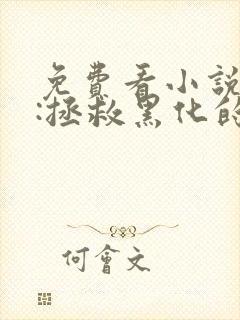 免費看小說
:拯救黑化的
何會文